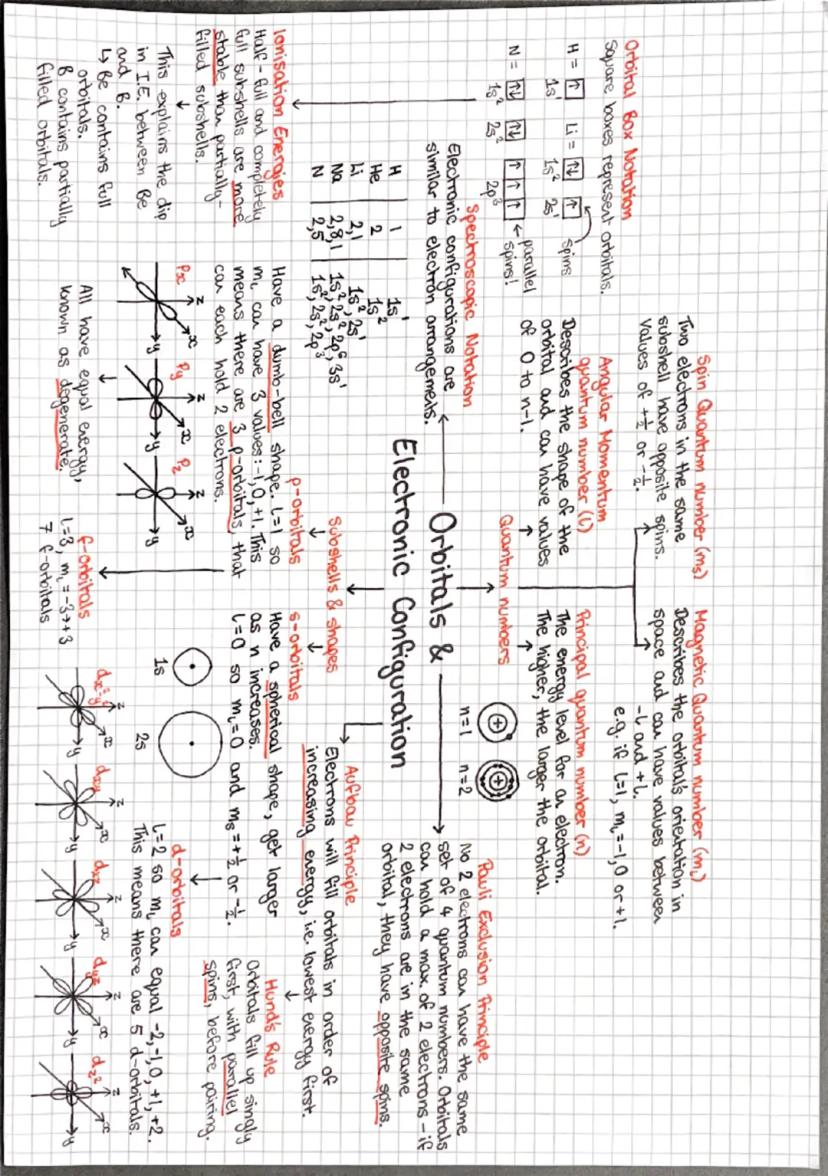 Orbitals &
Electronic Configuration
Orbital Box Notation
Square boxes represent orbitals.
H = ↑ Li = ↑↓ ↑ spins
1s¹ 1s² 2s¹
N = ↑↓ ↑↓ ↑ ↑ ↑ ← parallel
spins!
1s² 2s² 2p³
Spin Quantum number (ms)
Two electrons in the same
subshell have opposite spins.
Values of +½ or -½.
Magnetic Quantum number (mL)
Describes the orbitals orientation in
space and can have values between
-l and +l.
e.g. if l=1, mL=-1,0 or +1.
Angular Momentum
quantum number (l)
Describes the shape of the
orbital and can have values
of 0 to n-1.
Principal quantum number (n)
The energy level for an electron.
The higher, the larger the orbital.
n=1 n=2
Quantum numbers
Spectroscopic Notation
Electronic configurations are
similar to electron arrangements.
H 1 1s¹
He 2 1s²
Li 2,1 1s², 2s¹
Na 2,8,1 1s², 2s², 2p⁶, 3s¹
N 2,5 1s², 2s², 2p³
Pauli Exclusion Principle
No 2 electrons can have the same
set of 4 quantum numbers. Orbitals
can hold a max of 2 electrons - if
2 electrons are in the same
orbital, they have opposite spins.
Ionisation Energies
Half-full and completely
full subshells are more
stable than partially-
filled subshells.
This explains the dip
in I.E. between Be
and B.
↳ Be contains full
orbitals.
B contains partially
filled orbitals.
Subshells & shapes
p-orbitals
Have a dumb-bell shape. l=1 so
mL can have 3 values: -1,0,+1. This
means there are 3 p-orbitals, that
can each hold 2 electrons.
Px Py Pz
z x y z x y z x y
All have equal energy,
known as degenerate.
s-orbitals
Have a spherical shape, get larger
as n increases.
l=0 so mL=0 and ms=+½ or -½.
1s 2s
Aufbau Principle
Electrons will fill orbitals in order of
increasing energy, i.e. lowest energy first.
Hund's Rule
Orbitals fill up singly
first, with parallel
spins, before pairing.
f-orbitals
l=3, mL=-3→+3
7 f-orbitals
d-orbitals
l=2 so mL can equal -2,-1,0,+1,+2.
This means there are 5 d-orbitals.
dx²-y² dxy dxz dyz dz²
z x y z x y z x y z x y z x y